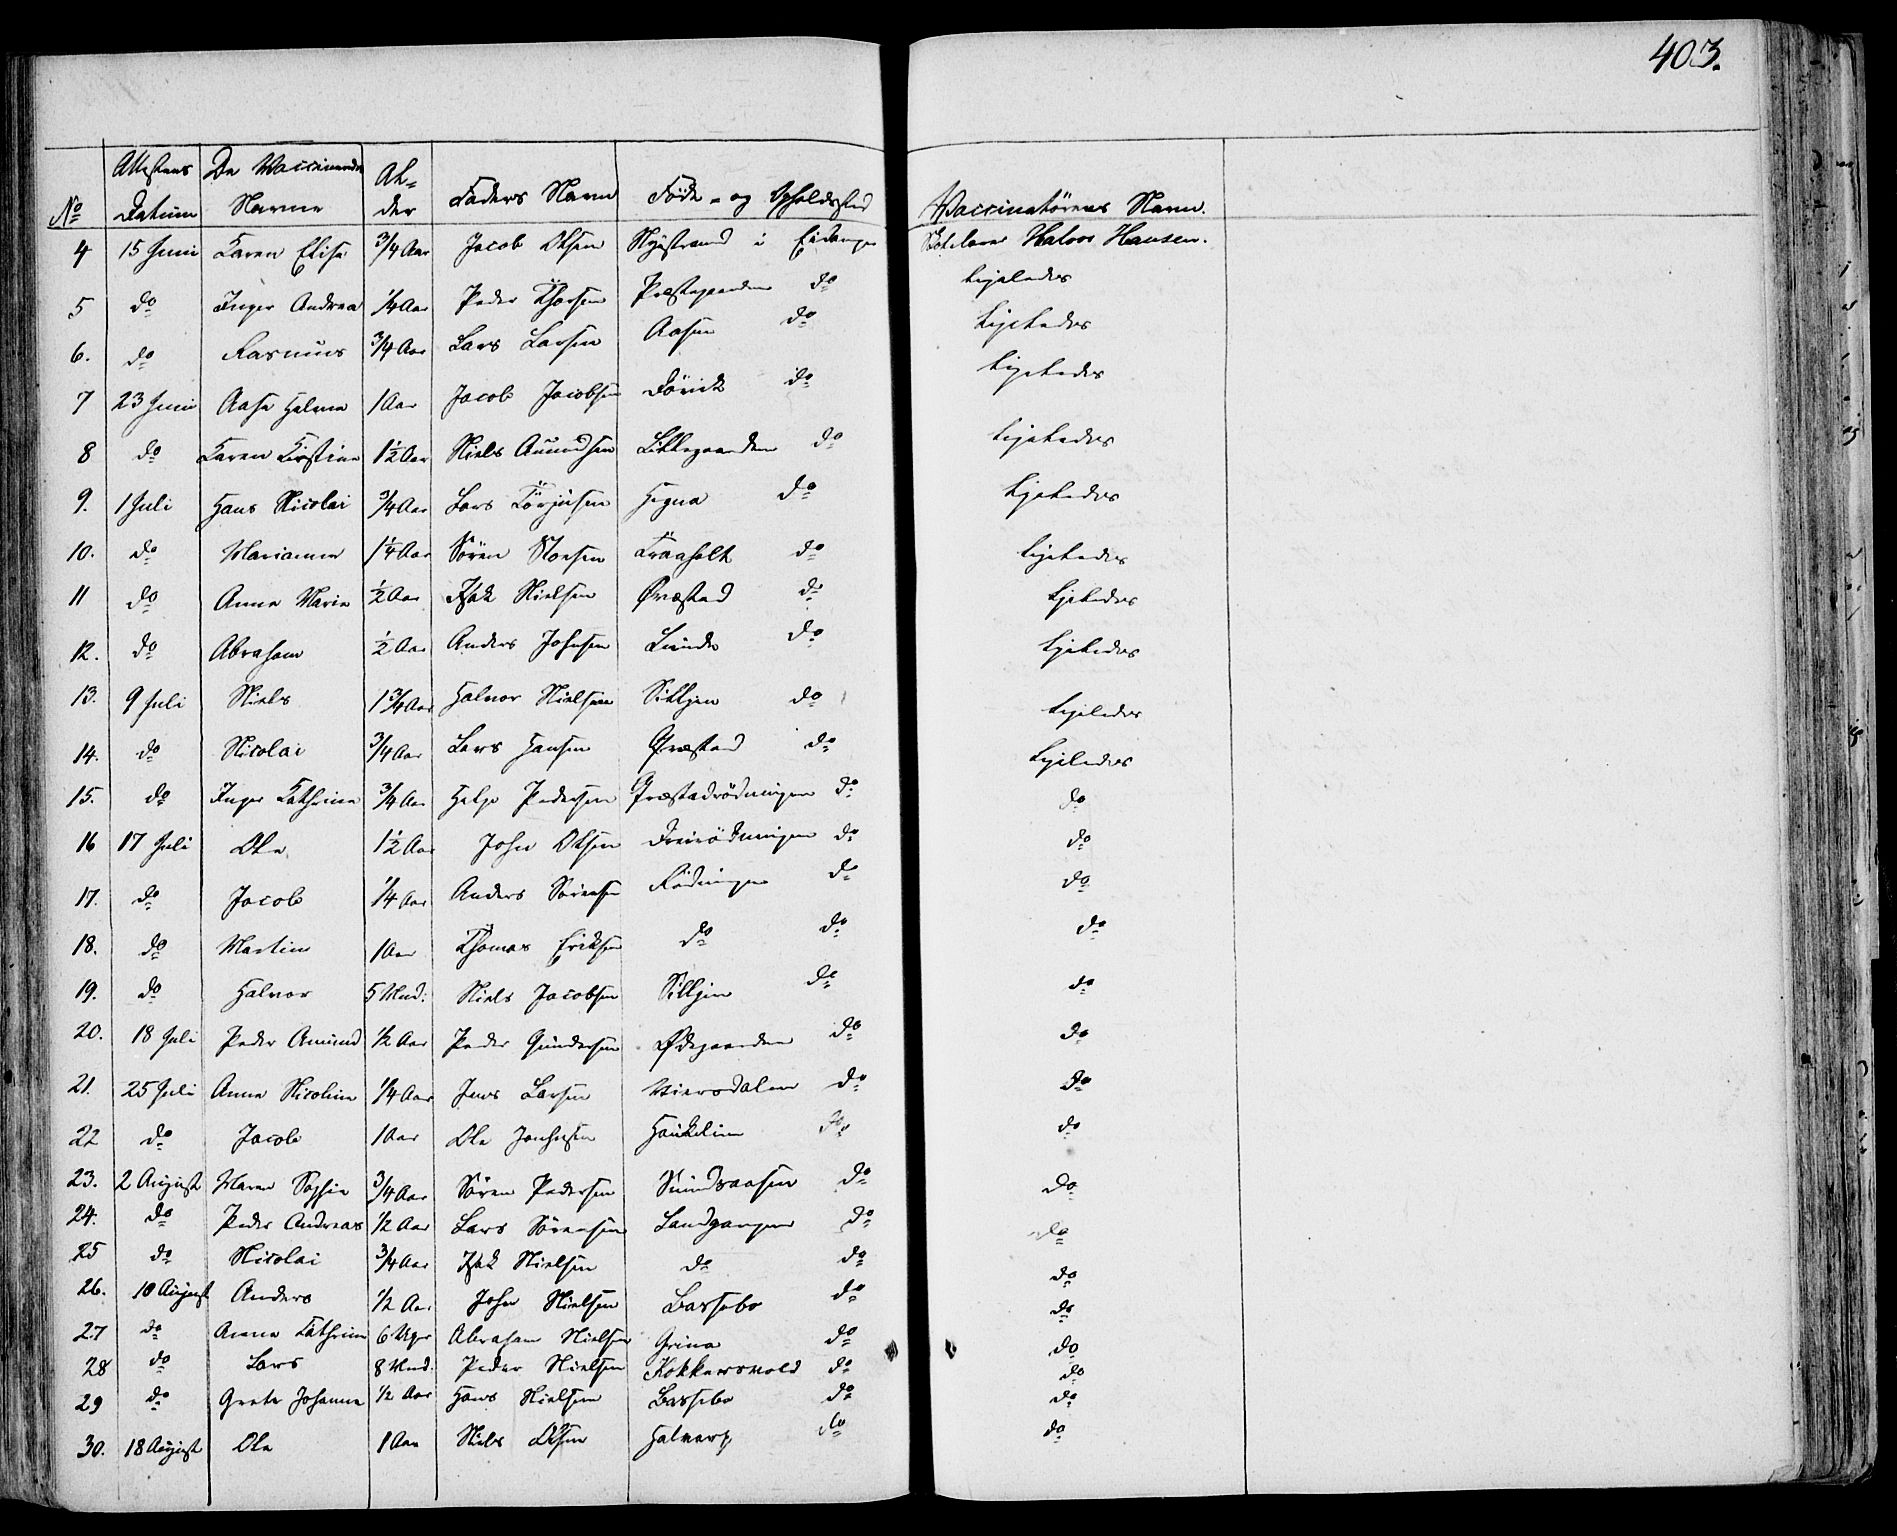 403.
No Attestens Datum De Vaccineredes Navne Alder Faders Navn Føde- og Opholdssted Vaccinatørens Navn.
4 15 Juni Karen Elise 3/4 Aar Jacob Olsen Nystrand i Eidanger Halvor Hansen.
5 do Inger Andrea 1/4 Aar Peder Thorsen Præstegaarden do Ligeledes
6. do Rasmus 3/4 Aar Lars Larsen Aasen do Ligeledes
7 23 Juni Aase Helene 1 Aar Jacob Jacobsen Dørvik do Ligeledes
8 do Karen Kirstine 1 1/2 Aar Niels Amundsen Lillegaarden do Ligeledes
9. 1 Juli Hans Nicolai 3/4 Aar Lars Törjusen Hegna do Ligeledes
10. do Mariane 1 1/4 Aar Sören Olsen Traaholt do Ligeledes
11 do Anne Marie 1/2 Aar Isak Nielsen Øvrestad do Ligeledes
12. do Abraham 1/2 Aar Anders Johnsen Lunde do Ligeledes
13. 9 Juli Niels 1 3/4 Aar Halvor Nielsen Silljen do Ligeledes
14. do Nicolai 3/4 Aar Lars Hansen Øvrestad do Ligeledes
15. do Inger Kathrine 3/4 Aar Helge Pedersen Øvrestadrödningen do do
16 17 Juli Ole 1 1/2 Aar John Olsen do do
17. do Jacob 1/4 Aar Anders Sörensen Rödningen do do
18. do Martin 1 Aar Thomas Eriksen do do do
19. do Halvor 5 Mnd: Niels Jacobsen Silljen do do
20. 18 Juli Peder Amund 1/2 Aar Peder Gundersen Ødegaarden do do
21. 25 Juli Anne Nicoline 1/4 Aar Jens Larsen Viersdalen do do
22 do Jacob 1 Aar Ole Johnsen Haukelien do do
23. 2 August Maren Sophie 3/4 Aar Sören Pedersen Sundsaasen do do
24. do Peder Andreas 1/2 Aar Lars Sörensen Landgangen do do
25 do Nicolai 3/4 Aar Isak Nielsen do do do
26. 10 August Anders 1/2 Aar John Nielsen Bassebo do do
27 do Anne Kathrine 6 Uger Abraham Nielsen Grina do do
28 do Lars 8 Mnd: Peder Nielsen Kokkersvold do do
29 do Grete Johanne 1/2 Aar Hans Nielsen Bassebo do do
30. 18 August Ole 1 Aar Niels Olsen Halvarp do do